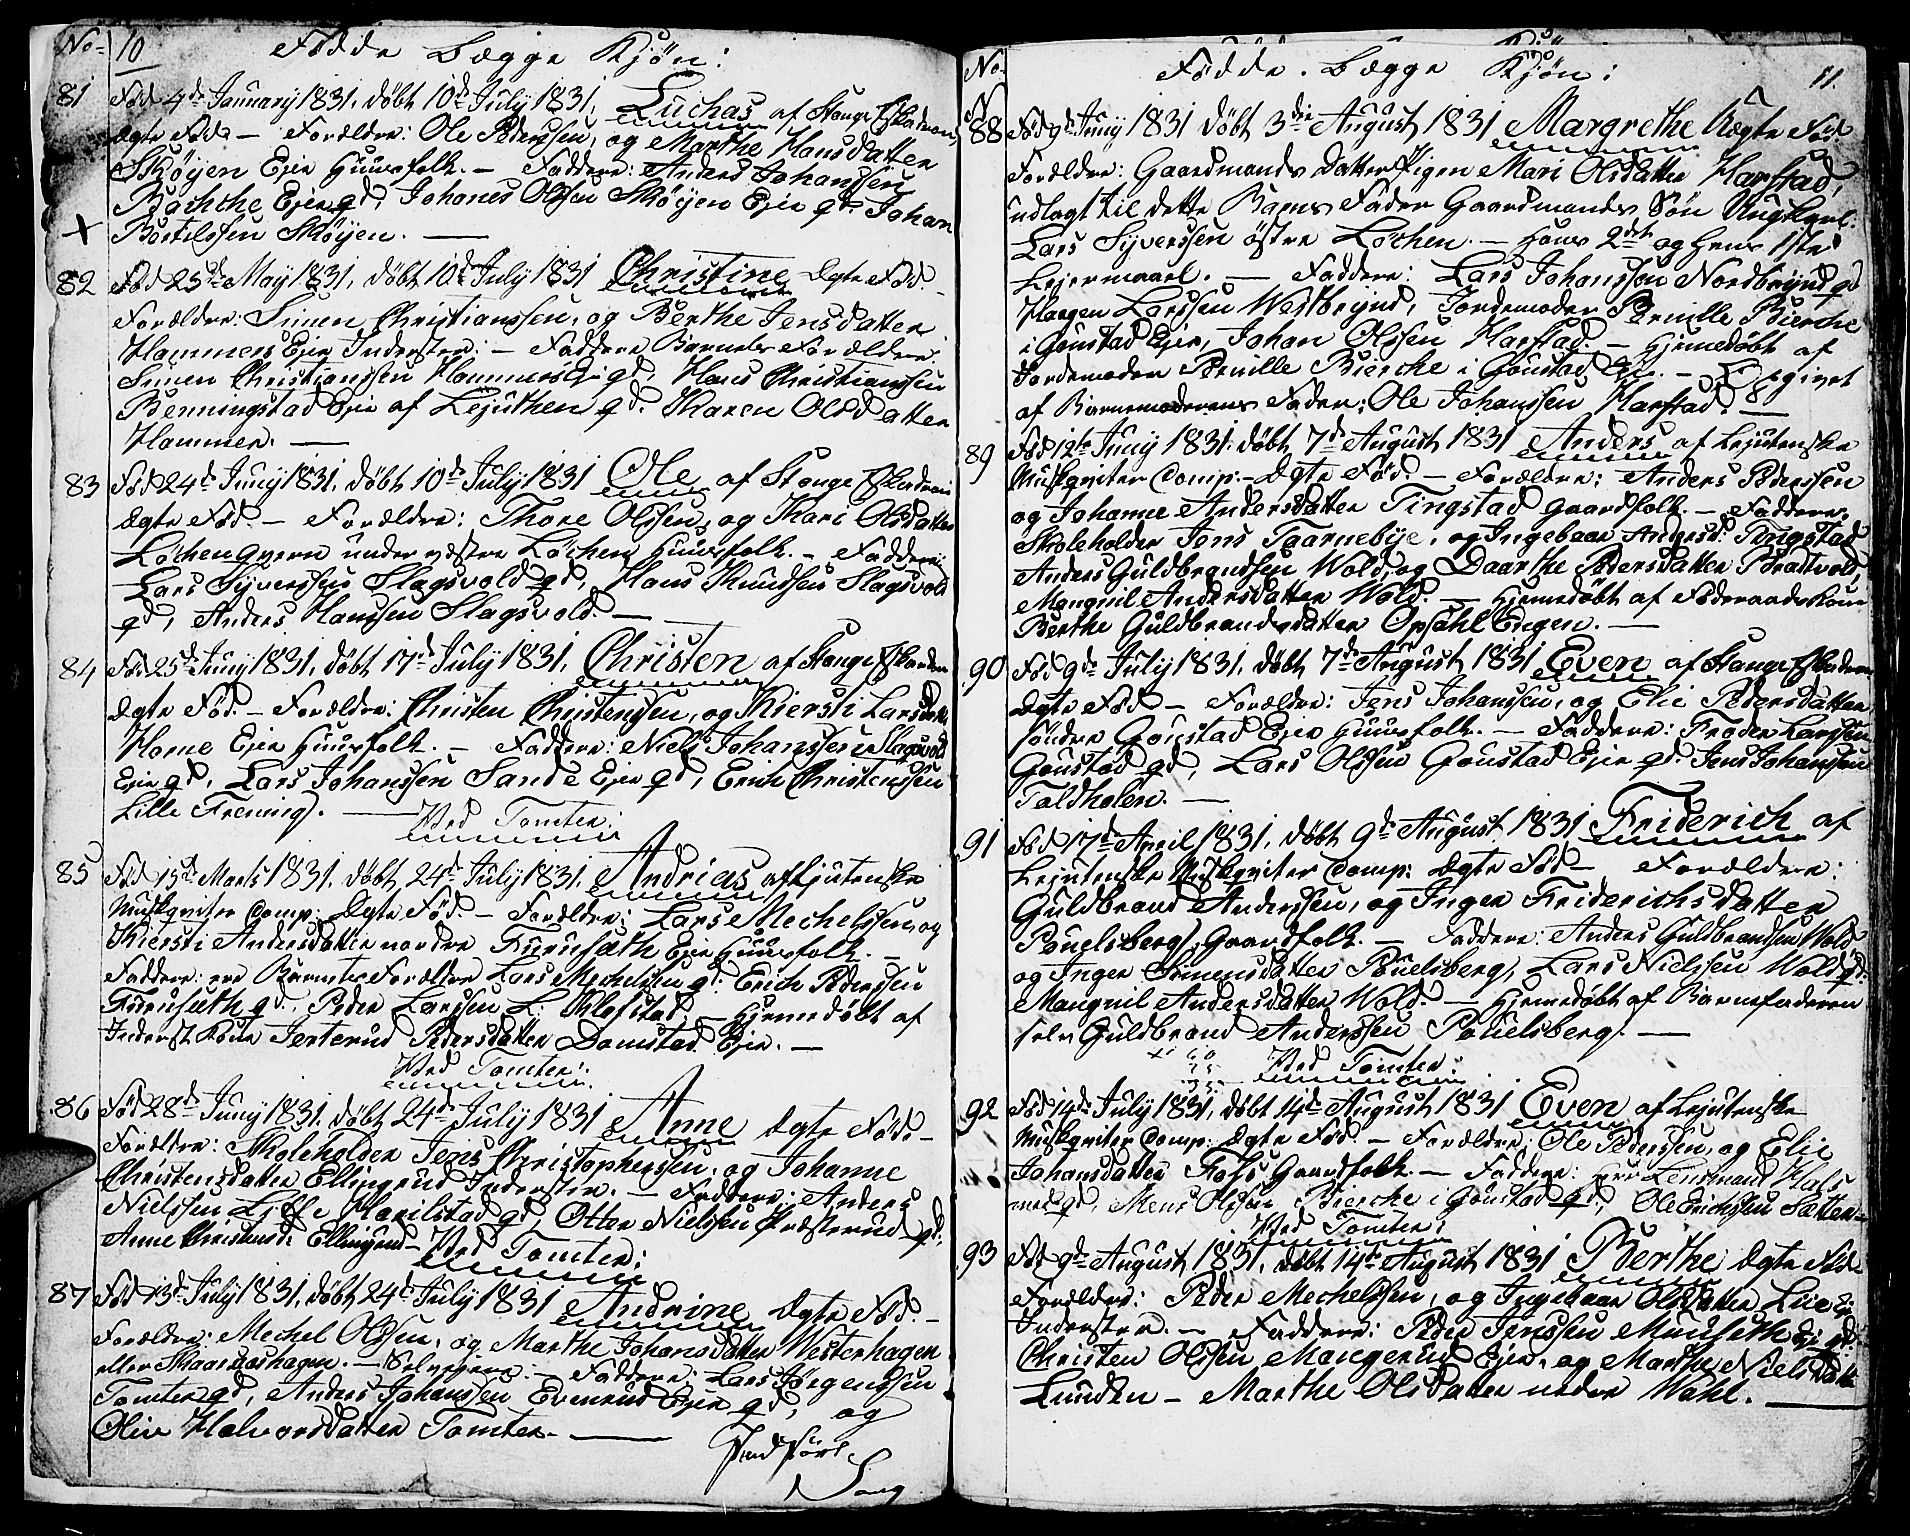 No. 10 Fødde Begge Kjøn:
81 Fød 4de January 1831, døbt 10de July 1831, Luchas af Stange Eskadron,
Ægte Fød – Forældre: Ole Pederssen, og Marthe Hansdatter
Skøyen Ejer Huusfolk. – Faddere: Anders Johanssen
Bachche Ejer gd, Johanes Olssen Skøyen Ejer gd. Johan
+ Bertilssen Skøyen. —
82 Fød 23de May 1831, døbt 10de July 1831 Christine Ægte Fød –
Forældre: Simen Christianssen, og Berthe Jensdatter
Hammers Ejer Inderster. – Faddere Barnets Forældre
Simen Christianssen Hammers Ejr gd, Hans Christianssen
Benningstad Ejer af Lejuthen gd. Karen Olsdatter
Hammer. —
83 Fød 24de Juny 1831, døbt 10de July 1831 Ole af Stange Eskadron
Ægte Fød. – Forældre: Thore Olssen, og Kari Olsdatter
Løchenqvern under vestre Løchen Huusfolk. – Faddere:
Lars Syverssen Slagsvold gd, Hans Knudssen Slagsvold
gd, Anders Hanssen Slagsvold. —
84 Fød 25de Juny 1831, døbt 17de July 1831, Christen af Stange Eskadron
Ægte Fød. – Forældre: Christen Christenssen, og Kiersti Larsdatter
Horne Ejer Huusfolk. – Faddere: Niels Johanssen Slagsvold
Ejer gd, Lars Johanssen Sande Ejer gd, Erich Christenssen
Lille Frening. — Ved Tomter:
85 Fød 15de Marts 1831, døbt 24de July 1831, Andrias af Ljutenske
Muskqviter Comp: Ægte Fød. – Forældre: Lars Mechelssen, og
Kiersti Andersdatter nordre Furuseth Ejer Huusfolk. –
Faddere: ere Barnets Forældre Lars Mechelssen gd. Erich Pederssen
Furuseth gd., Peder Larssen L: Klofstad. – Hjemedøbt af
Inderst Kone Jerterud Pedersdatter Domstad Ejer. —
Ved Tomter:
86 Fød 28de Juny 1831, døbt 24de July 1831 Anne Ægte Fød –
Forældre: Skoleholder Jens Christopherssen, og Johanne
Christensdatter Ellingrud Inderster. – Faddere: Anders
Nielssen Harilstad gd, Otter Nielssen Præsterud gd,
Anne Christensd: Ellingrud – Ved Tomter:
87 Fød 13de July 1831, døbt 24de July 1831 Andrine Ægte Fød. –
Forældre: Mechel Olssen, og Marthe Johansdatter Westerhagen
eller Skaaraashagen. – Selvejere. – Faddere: Lars Jørgenssen
Tomter gd, Anders Johanssen Evenrud Ejer gd, og
Olive Halvorsdatter Tomter. —
Indført
No. Fødde. Begge Kjøn: 11.
88 Fød 9de Juny 1831 døbt 3die August 1831 Margrethe Uægte Fød
Forældre: Gaardmands Datter Pigen Mari Olsdatter Harstad,
udlagt til dette Barns Fader Gaardmands Søn Ungkarl.
Lars Syverssen østre Løchen. – Hans 2det og Hens 1ste
Lejermaal. – Faddere: Lars Johanssen Nordbrynd gd
Haagen Larssen Westbrynd, Jordemoder Pernille Bierche
i Gonstad Ejer, Johan Olssen Harstad. – Hjemedøbt af
Jordemoder Pernille Bierche i Gonstad Ejr. – Opgivet
af Barnemoderens Fader: Ole Johanssen Harstad. —
89 Fød 12te Juny 1831, døbt 7de August 1831 Anders af Lejutenske
Muskqviter Comp: – Ægte Fød. – Forældre: Anders Pederssen
og Johanne Andersdatter Tingstad Gaardfolk. – Faddere,
Skoleholder Jens Taarnebye, og Ingebaar Andersd: Tingstad
Anders Guldbrandsen Wold, og Daarthe Pedersdatter Bradtvold,
Mangnil Andersdatter Wold. – Hjemedøbt af Føderaads Kone
Berthe Guldbrandsdatter Opsahl Engen. —
90 Fød 9de July 1831, døbt 7de August 1831 Even af Stange Eskadron
Ægte Fød – Forældre: Jens Johanssen, og Elie Pedersdatter
søndre Gonstad Ejer Huusfolk. – Faddere: Froder Larssen
Gonstad gd, Lars Olssen Gonstad Ejer gd. Jens Johanssen
Taldholen. —
91 Fød 17de April 1831, døbt 9de August 1831 Friderich af
Lejutenske Muskqviter Comp: Ægte Fød – Forældre:
Guldbrand Anderssen, og Inger Friderichsdatter
Pouelsberg, Gaardfolk. – Faddere: Anders Guldbrandssen Wold
og Inger Simensdatter Pouelsberg, Lars Nielssen Wold gd.
Mangnil Andersdatter Wold. – Hjemedøbt af Barnefaderen
selv Guldbrand Anderssen Pouelsberg. —
Ved Tomter:
92 Fød 14de July 1831, døbt 14de August 1831 Even af Lejutenske
Muskqviter Comp: Ægte Fød. – Forældre: Ole Pederssen, og Elie
Johansdatter Gaardfolk. – Faddere: Herr Lensmand Hals
gd, Mens Olssen Bierche i Gonstad gd, Ole Erichssen Sætter –
Ved Tomter:
93 Fød 9de August 1831, døbt 14de August 1831 Berthe Ægte Fød –
Forældre: Peder Mechelssen, og Ingebaar Olsdatter Lie Ej
Inderster. – Faddere: Peder Jenssen Munseth Ej gd,
Christen Olssen Mangerud Ejer, og Marthe Nielsdatter
Lunden – Marthe Olsdatter nedre Wahl. —